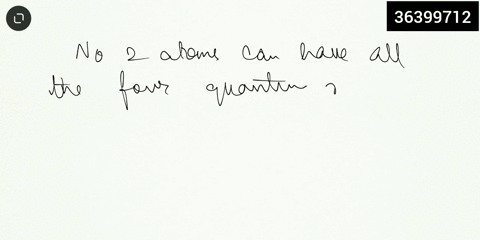 36399712
No 2 atoms can have all
the four quantum